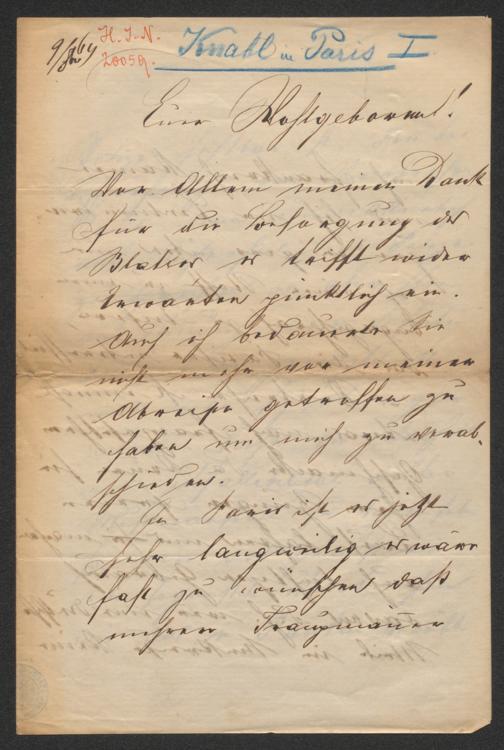 9/6 69
H. I. N.
20059.
Knabl in Paris I
Euer Wohlgeboren!
Vor Allem meinen Dank
für die Besorgung des
Blattes es trifft wider
Erwarten pünktlich ein.
Auch ich bedauerte Sie
nicht mehr vor meiner
Abreise getroffen zu
haben um mich zu verab-
schieden.
In Paris ist es jetzt
sehr langweilig es wäre
fast zu wünschen daß
mehrere Traupmänner